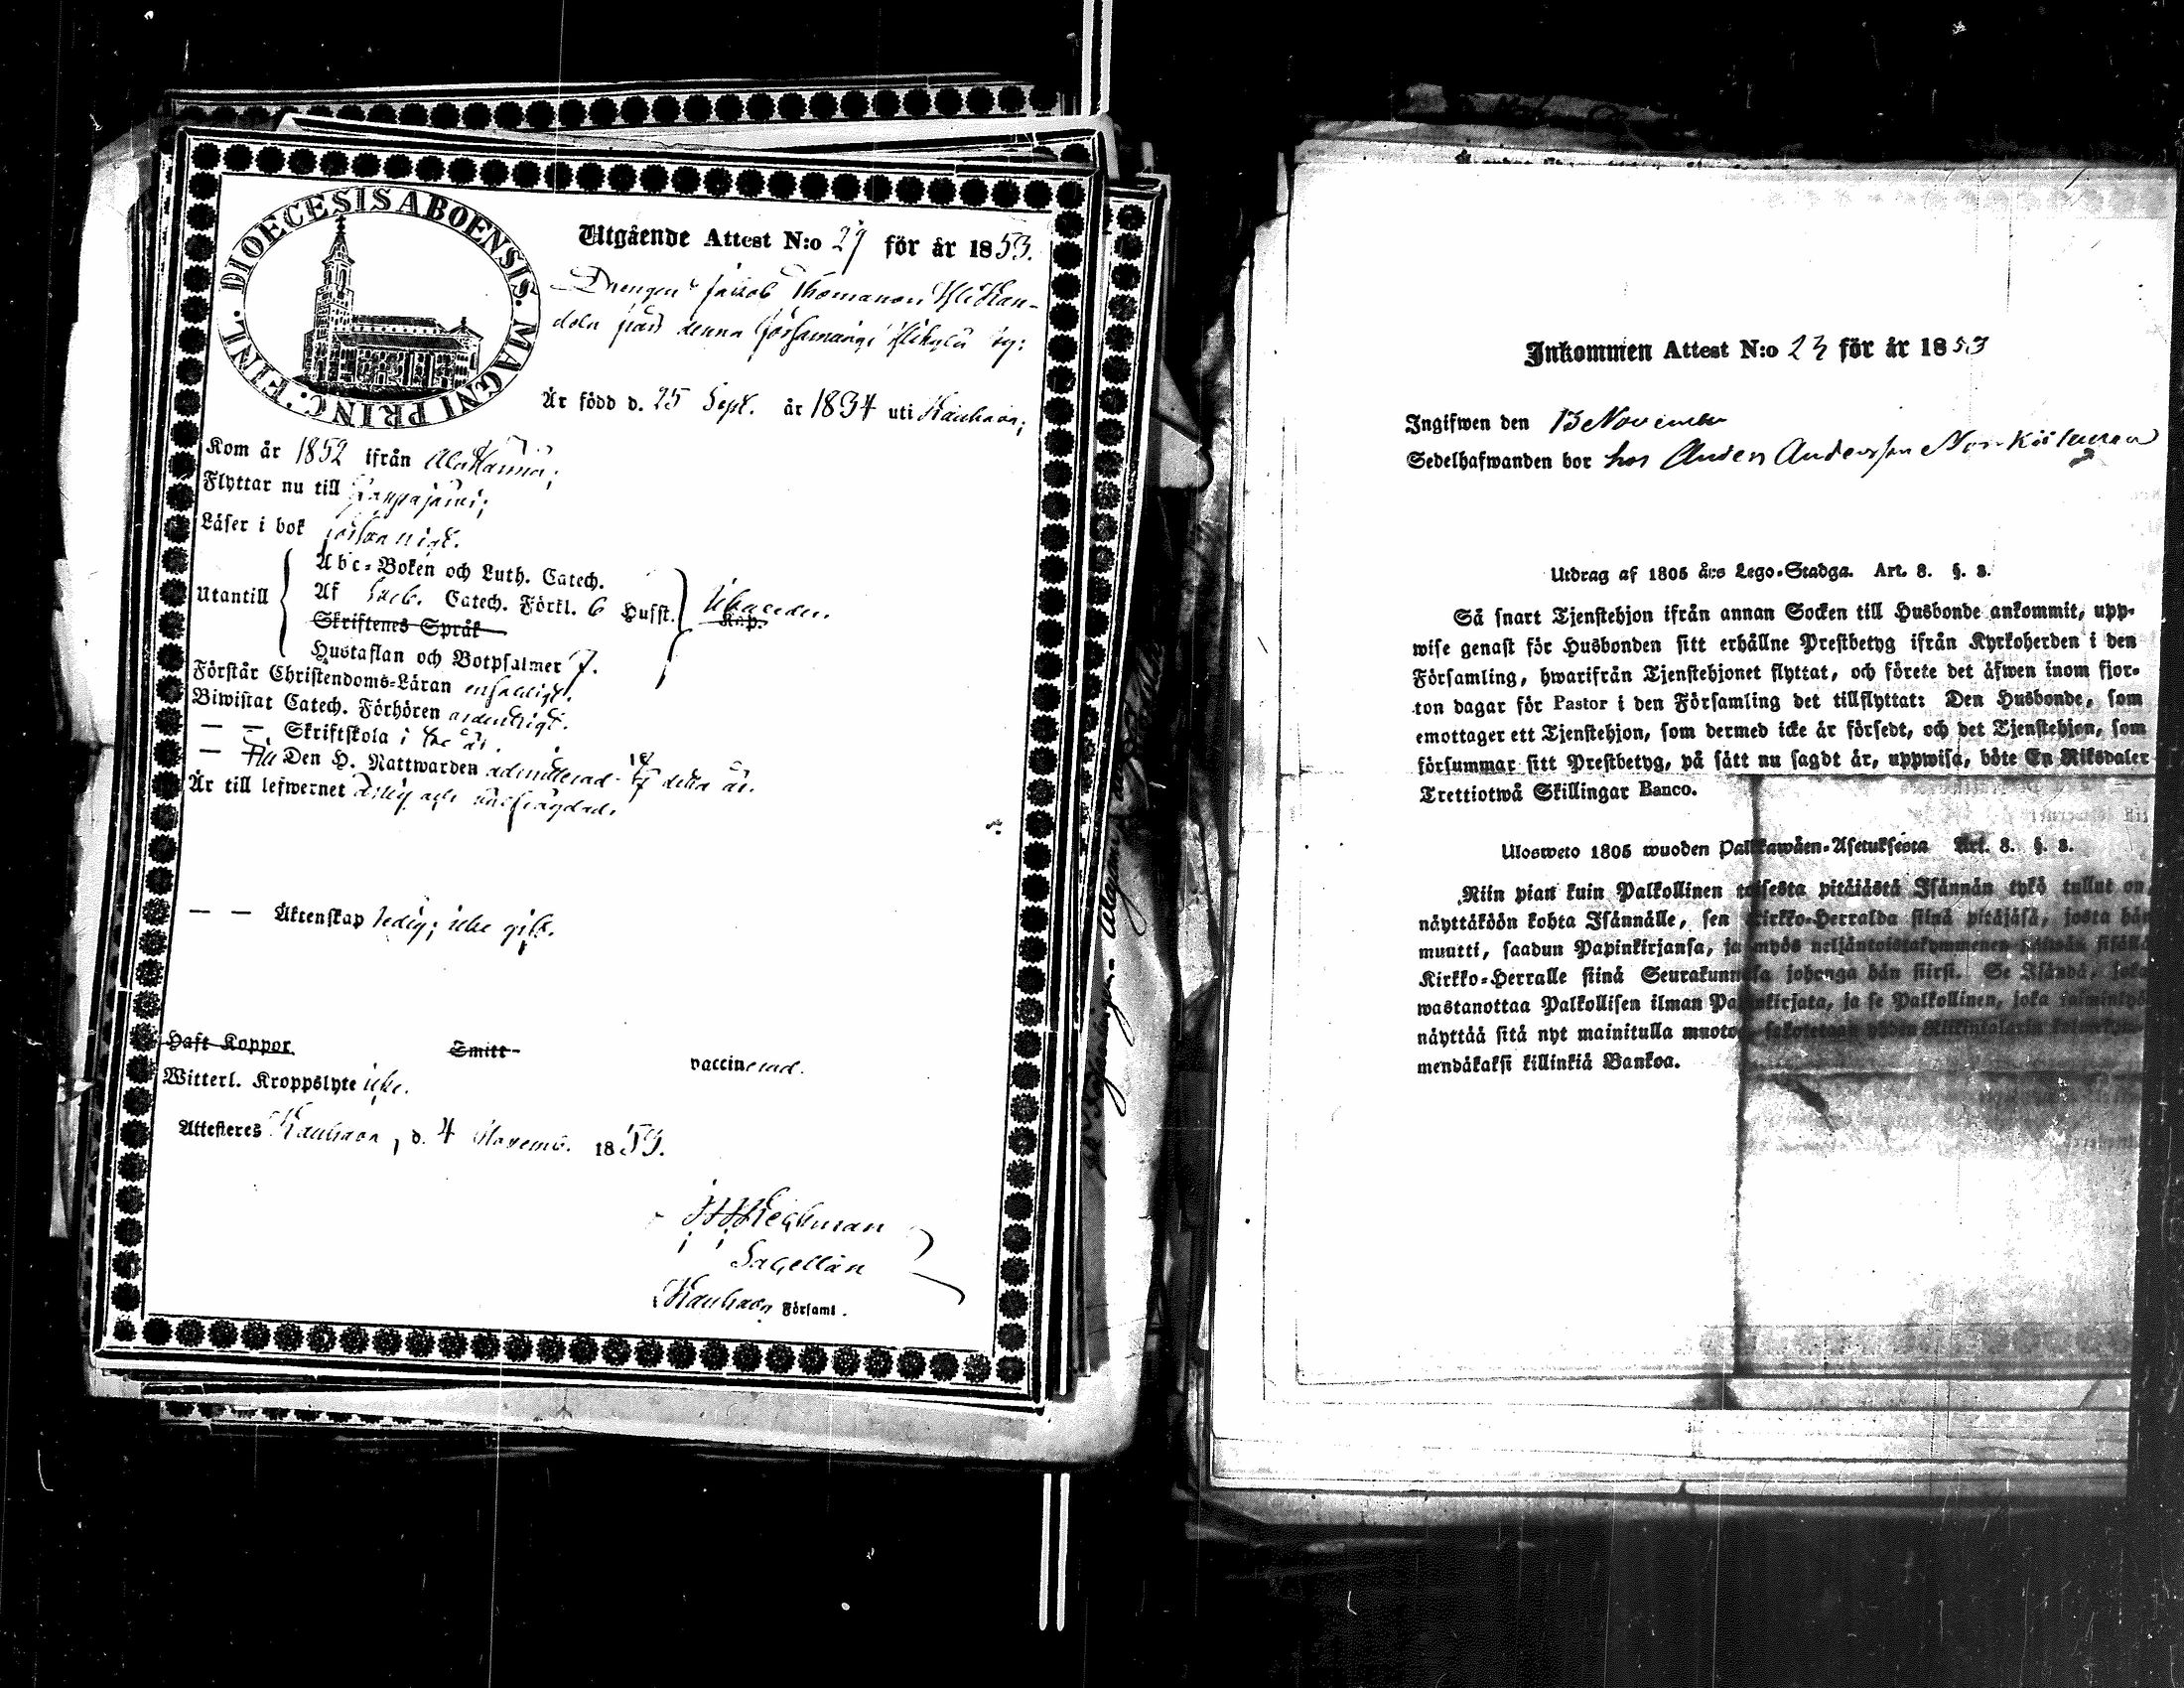 DIOECESIS ABOENSIS. MAGNI PRINC. FINL.
Utgående Attest N:o 29 för år 1853.
Drengen Jacob Thomasson
från denna församlings Ylikylä by:
Är född d. 25 Sept. år 1834 uti Kauhava;
Kom år 1852 ifrån Alahärmä;
Flyttar nu till Lappajärvi;
Läser i bok försvarligt.
Utantill
Abc-Boken och Luth. Catech.
Af Sveb. Catech. Förkl. 6 Husst.
Skriftenes Språk
Hustaflan och Botpsalmer 7.
Kap.
Förstår Christendoms-Läran enfaldigt.
Biwistat Catech. Förhören ordentligt.
— — Skriftskola i
— Den H. Nattwarden admitterad detta år.
Är till lefwernet ärlig och
— — Äktenskap ledig; icke gift.
Haft Koppor Smitt- vaccinerad.
Witterl. Kroppslyte icke.
Attesteres Kauhava, d. 4 Novemb. 1853.
Sacellan
Kauhava Församl.
Inkommen Attest N:o 23 för år 1853
Ingifwen den 13 November
Sedelhafwanden bor hos Anders Andersson
Utdrag af 1805 års Lego-Stadga. Art. 8. §. 3.
Så snart Tjenstehjon ifrån annan Socken till Husbonde ankommit, upp-
wise genast för Husbonden sitt erhållne Prestbetyg ifrån Kyrkoherden i den
Församling, hwarifrån Tjenstehjonet flyttat, och förete det äfwen inom fjor-
ton dagar för Pastor i den Församling det tillflyttat: Den Husbonde, som
emottager ett Tjenstehjon, som dermed icke är försedt, och det Tjenstehjon, som
försummar sitt Prestbetyg, på sätt nu sagdt är, uppwisa, böte En Riksdaler
Trettiotwå Skillingar Banco.
Ulosweto 1805 wuoden Palkkawäen-Asetuksesta Art. 8. §. 3.
Niin pian kuin Palkollinen toisesta pitäjästä Isännän tykö tullut on,
näyttäköön kohta Isännälle, sen Kirkko-Herralda siinä pitäjäsä, josta hän
muutti, saadun Papinkirjansa, ja myös neljäntoistakymmenen päiwän sisällä
Kirkko-Herralle siinä Seurakunnasa johonga hän siirsi. Se Isändä, joka
wastanottaa Palkollisen ilman Papinkirjata, ja se Palkollinen, joka laiminlyö
näyttää sitä nyt mainitulla muotoa, sakotetaan yhden Riikintalarin kolmekym-
mendäkaksi killinkiä Bankoa.